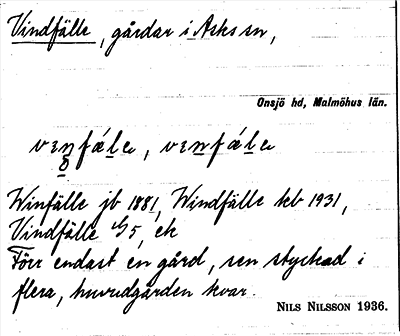 Vindfälle, gårdar i Asks sn,
Onsjö hd, Malmöhus län.
Winfälle jb 1881, Windfälle kb 1931,
Vindfälle 5, ek
Förr endast en gård, sen styckad i
flera, huvudgården kvar.
NILS NILSSON 1936.